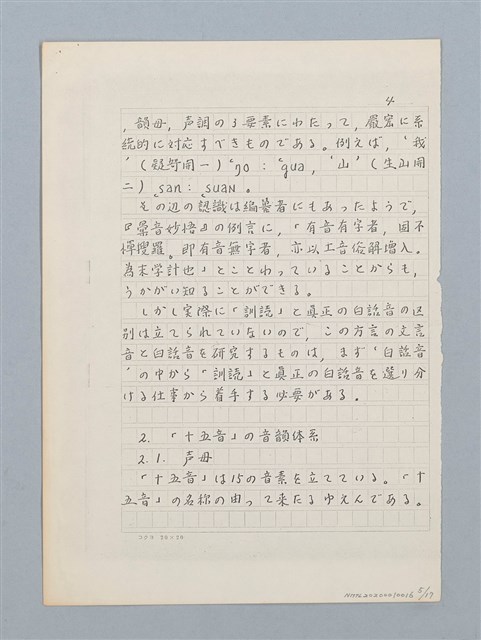 4
，韻母，声調の3要素にわたって，厳密に系
統的に対応すべきものである。例えば，‘我
’（疑哿開一）ᶜŋo：ᶜgua，‘山’（生山開
二）꜀san：꜀suaɴ。
その辺の認識は編纂者にもあったようで，
『彙音妙悟』の例言に，「有音有字者，固不
憚搜羅。即有音無字者，亦以土音俗解増入。
為末学計也」とことわっていることからも，
うかがい知ることができる。
しかし実際に「訓読」と真正の白話音の区
別は立てられていないので，この方言の文言
音と白話音を研究するものは，まず‘白話音
’の中から「訓読」と真正の白話音を選り分
ける仕事から着手する必要がある。
2．「十五音」の音韻体系
2.1．声母
「十五音」は15の音素を立てている。「十
五音」の名称の由って来たるゆえんである。
コクヨ 20×20
5/17